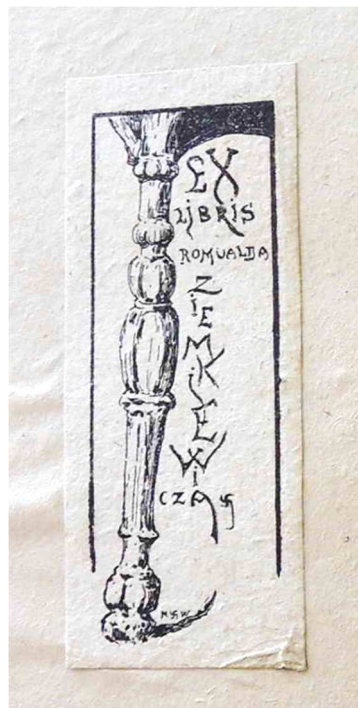 EX
LIBRIS
ROMUALDA
ZIEMKIEWI
CZA 卐